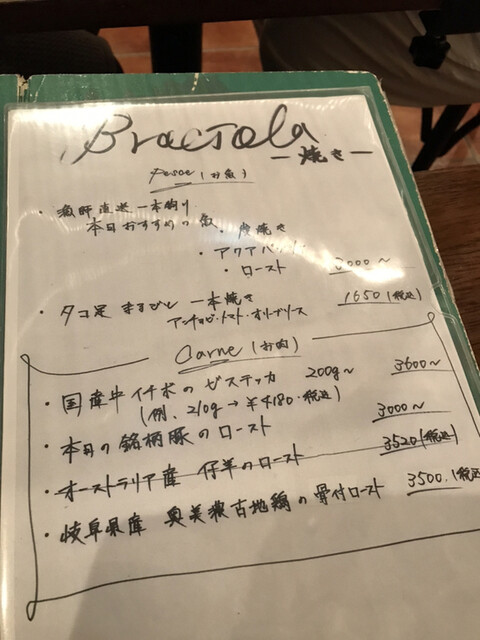 Braciola
ー焼きー
Pesce (お魚)
・漁師直送 一本釣り
本日おすすめの魚 ・炭焼き
・アクアパッツァ
・ロースト 3000〜
・タコ足 まるごと 一本焼き 1650 (税込)
アンチョビ・トマト・オリーブソース
Carne (お肉)
・国産牛イチボのビステッカ 200g〜 3600〜
(例、210g→¥4180・税込)
・本日の銘柄豚のロースト 3000〜
・オーストラリア産 仔羊のロースト 3520(税込)
・岐阜県産 奥美濃古地鶏の骨付ロースト 3500.(税込